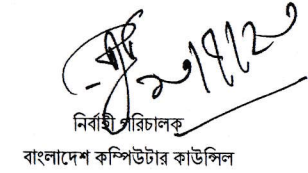 নির্বাহী পরিচালক
বাংলাদেশ কম্পিউটার কাউন্সিল